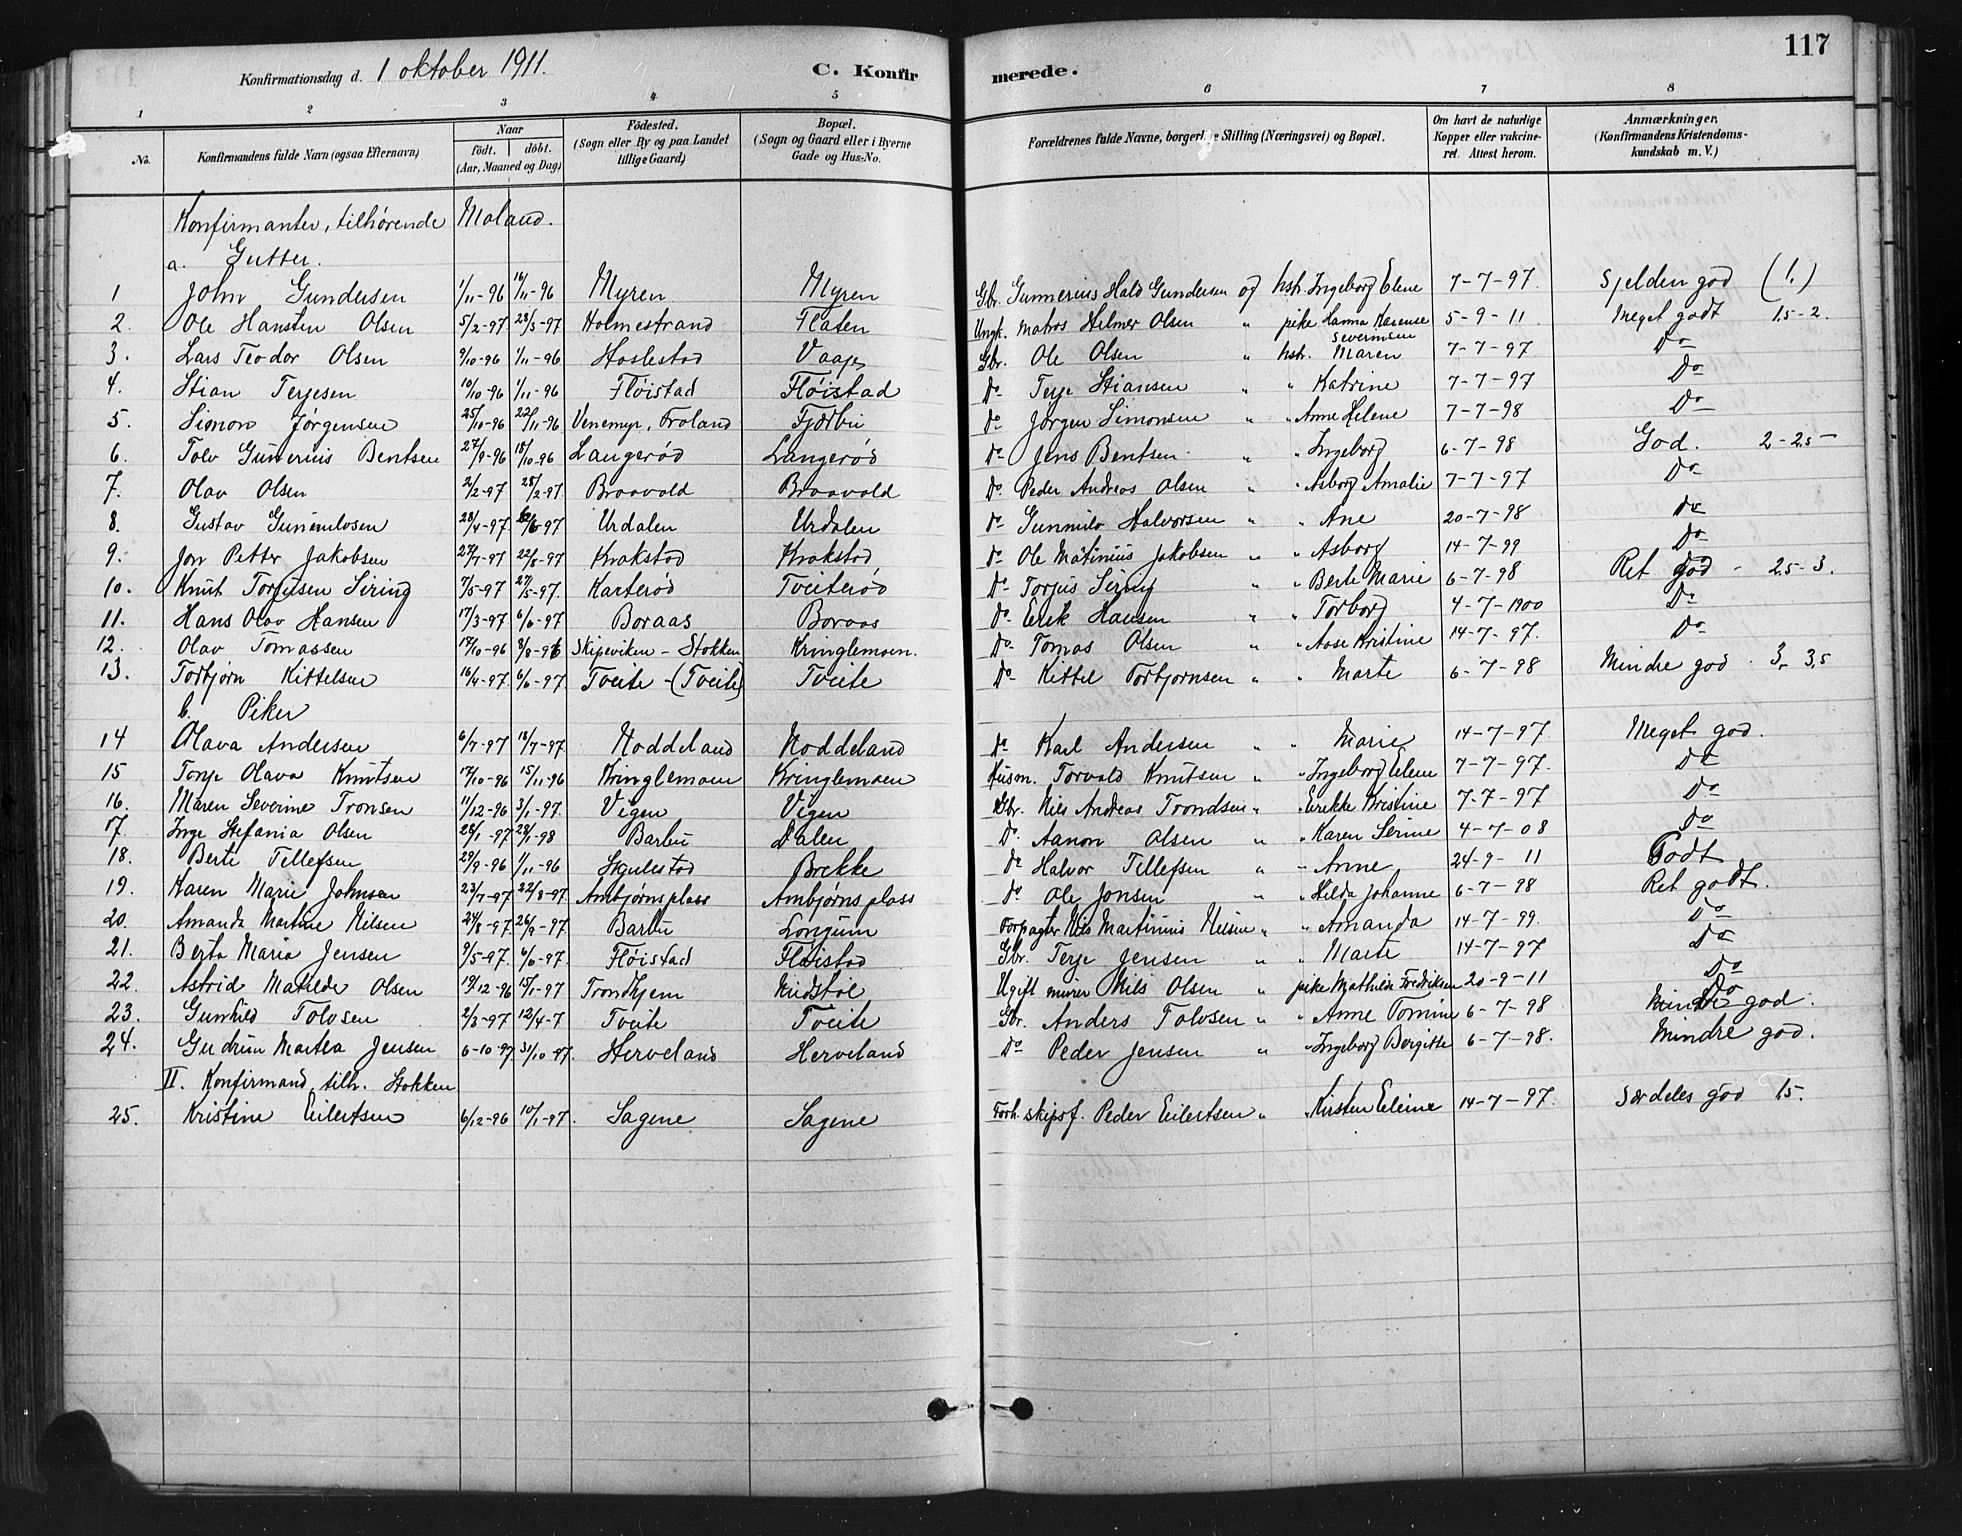 117
Konfirmationsdag d. 1 oktober 1911. C. Konfirmerede.
1 2 3 4 5 6 7 8
No. Konfirmandens fulde Navn (ogsaa Efternavn) Naar født. døbt. (Aar, Maaned og Dag) Fødested. (Sogn eller By og paa Landet tillige Gaard) Bopæl. (Sogn og Gaard eller i Byerne Gade og Hus-No. Forældrenes fulde Navne, borgerlige Stilling (Næringsvei) og Bopæl. Om havt de naturlige Kopper eller vakcineret. Attest herom. Anmærkninger. (Konfirmandens Kristendomskundskab m. V.)
Konfirmanter, tilhørende Moland.
a. Gutter.
1 John Gundersen 1/11-96 16/11-96 Myren Myren Gbr. Gunnerius Hald Gundersen og hstr. Ingeborg Elene 7-7-97. Sjelden god (1.)
2. Ole Hansten Olsen 5/2-97 28/3-97 Holmestrand Flaten Ungk. matros Helmer Olsen " pike Hanna Karense Severinsen 5-9-11 Meget godt 1.5-2.
3. Lars Teodor Olsen 9/10-96 1/11-96 Haslestad Vaaje Gbr. Ole Olsen " hstr. Maren 7-7-97 Do
4. Stian Terjesen 10/10-96 1/11-96 Fløistad Fløistad Do Terje Stiansen " " Katrine 7-7-97 Do
5. Simon Jørgensen 25/10-96 22/11-96 Venemyr, Froland Fjørbu Do Jørgen Simonsen " " Anne Helene 7-7-98 Do
6. Tolv Gunerius Bentsen 27/9-96 18/10-96 Langerød Langerød Do Jens Bentsen " " Ingeborg 6-7-98 God. 2-2.5
7. Olav Olsen 2/2-97 28/2-97. Braavold Braavold Do Peder Andreas Olsen " " Asborg Amalie 7-7-97 Do
8. Gustav Gunmulosen 28/4-97 /6-97 Urdalen Urdalen Do Gunmulv Halvorsen " " Ane 20-7-98 Do
9. Jon Petter Jakobsen 27/7-97 22/8-97 Krakstad Krakstad Do Ole Matinius Jakobsen " " Asborg 14-7-99 Do
10. Knut Torjusen Siring 7/5-97 27/5-97. Karterød Tveiterød Do Torjus Siring " " Berte Marie 6-7-98 Ret god - 2.5-3.
11. Hans Olav Hansen 17/3-97 6/6-97 Boraas Boraas Do Erik Hansen " " Torborg 4-7-1900 Do
12. Olav Tomassen 17/10-96 8/8-96 Skigeviken - Stokken Kringlemoen. Do Tomas Olsen " " Aase Kristine 14-7-97. Do
13. Torbjørn Kittelsen 16/4-97 6/6-97. Tveite - (Tveite) Tveite Do Kittel Torbjørnsen " " Marte 6-7-98 Mindre god. 3-3.5
b. Piker
14 Olava Andersen 6/7-97 18/7-97. Noddeland Noddeland Do Karl Andersen " " Marie 14-7-97. Meget god.
15 Tonje Olava Knutsen 17/10-96 15/11-96 Kringlemoen Kringlemoen Husm. Torvald Knutsen " " Ingeborg Elene 7-7-97. Do
16. Maren Severine Tronsen 11/12-96 3/1-97. Vigen Vigen Gbr. Nils Andreas Trondsen " " Erikke Kristine 7-7-97 Do
17. Inge Stefania Olsen 28/1-97 28/1-98 Barbu Dalen Do. Aanon Olsen " " Karen Serine 4-7-08 Do
18. Berte Tellefsen 29/9-96 1/11-96 Skjulestad Brekke Do Halvor Tellefsen " " Anne 24-9-11 Godt
19. Karen Marie Johnsen 23/7-97 22/8-97 Ambjørnsplass Ambjørnsplass Do Ole Jonsen " " Hilda Johanne 6-7-98 Ret godt.
20. Amanda Martine Nilsen 24/8-97. 26/9-97. Barbu Longum Forpagter Nils Martinius Nilsen " " Amanda 14-7-99. Do
21. Berta Maria Jensen 9/5-97. 6/6-97. Fløistad Fløistad Gbr. Terje Jensen " " Marte 14-7-97 Do
22. Astrid Matilde Olsen 19/12-96 15/1-97 Trondhjem Ugift murer Nils Olsen " pike Mathilde Fredriksen 20-9-11 Do
23. Gunhild Tolvsen 2/3-97 12/4-7 Tveite Tveite Gbr. Anders Tolvsen " " Anne Tomine 6-7-98 Do Mindre god.
24. Gudrun Martea Jensen 6-10-97 31/10-97. Herveland Herveland Do Peder Jensen " " Ingeborg Bergitte 6-7-98. Mindre god.
II. Konfirmand, tilh. Stokken
25. Kristine Eilertsen 6/12-96 10/1-97. Sagene Sagene Forh. skipsf. Peder Eilertsen " " Kirsten Eleine 14-7-97. Særdeles god 1.5.